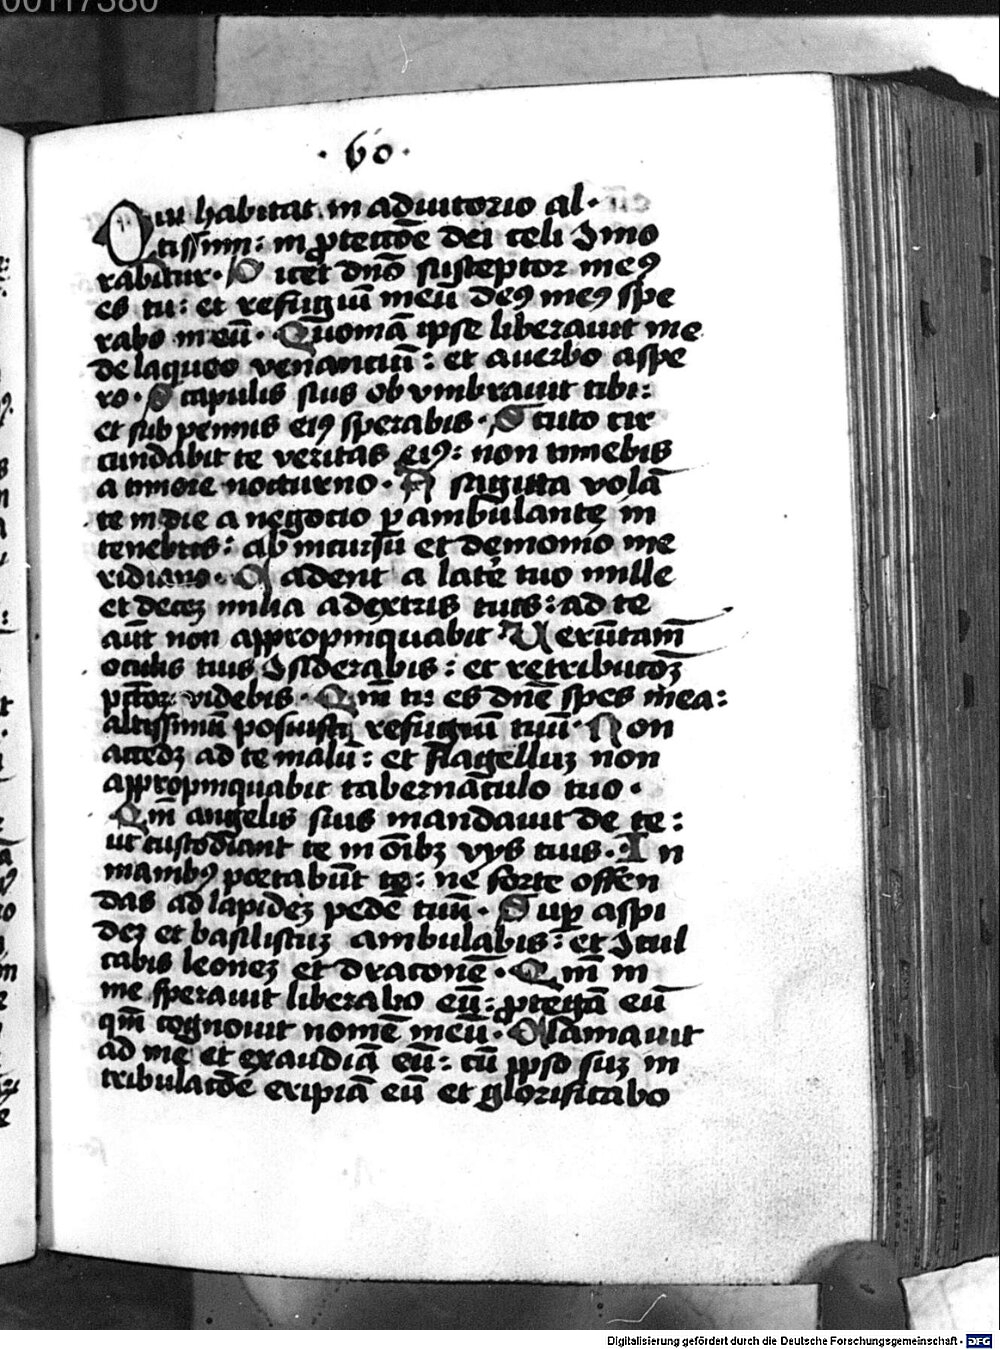 00117380
· 60 ·
Qui habitat in adiutorio al·
tissimi: in ꝓtectōe dei celi ɔmo
rabitur· Dicet dnō susceptor meꝰ
es tu: et refugiū meū deꝰ meꝰ spe
rabo in eū· Quoniā ipse liberauit me
de laqueo venantiū: et auerbo aspe
ro· Scapulis suis obvmbrauit tibi:
et sub pennis eiꝰ sperabis· Scuto cir
cundabit te veritas eiꝰ: non timebis
a timore nocturno· A sagitta volā
te in die a negotio ꝑambulante in
tenebris: ab incursu et demonio me
ridiano· Cadent a late tuo mille
et decez milia adextris tuis: ad te
aūt non appropinquabit Uerūtam̄
oculis tuis ɔsiderabis: et retributoꝝ
pctoꝝ videbis· Qm̄ tu es dnē spes mea:
altissimū posuisti refugiū tuū· Non
accedꝫ ad te malū: et flagelluꝫ non
appropinquabit tabernaculo tuo·
Qm̄ angelis suis mandauit de te:
ut custodiant te in oībꝫ vijs tuis· In
manibꝰ portabūt te: ne forte offen
das ad lapideꝫ pedē tuū· Suꝑ aspi
deꝫ et basiliscuꝫ ambulabis: et ɔcul
cabis leoneꝫ et draconē· Qm̄ in
me sperauit liberabo eū: ꝓtegā eū
qm̄ cognouit nomē meū· Clamauit
ad me et exaudiā eū: cū ipso suꝫ in
tribulatōe eripiā eū et glorificabo
Digitalisierung gefördert durch die Deutsche Forschungsgemeinschaft - DFG